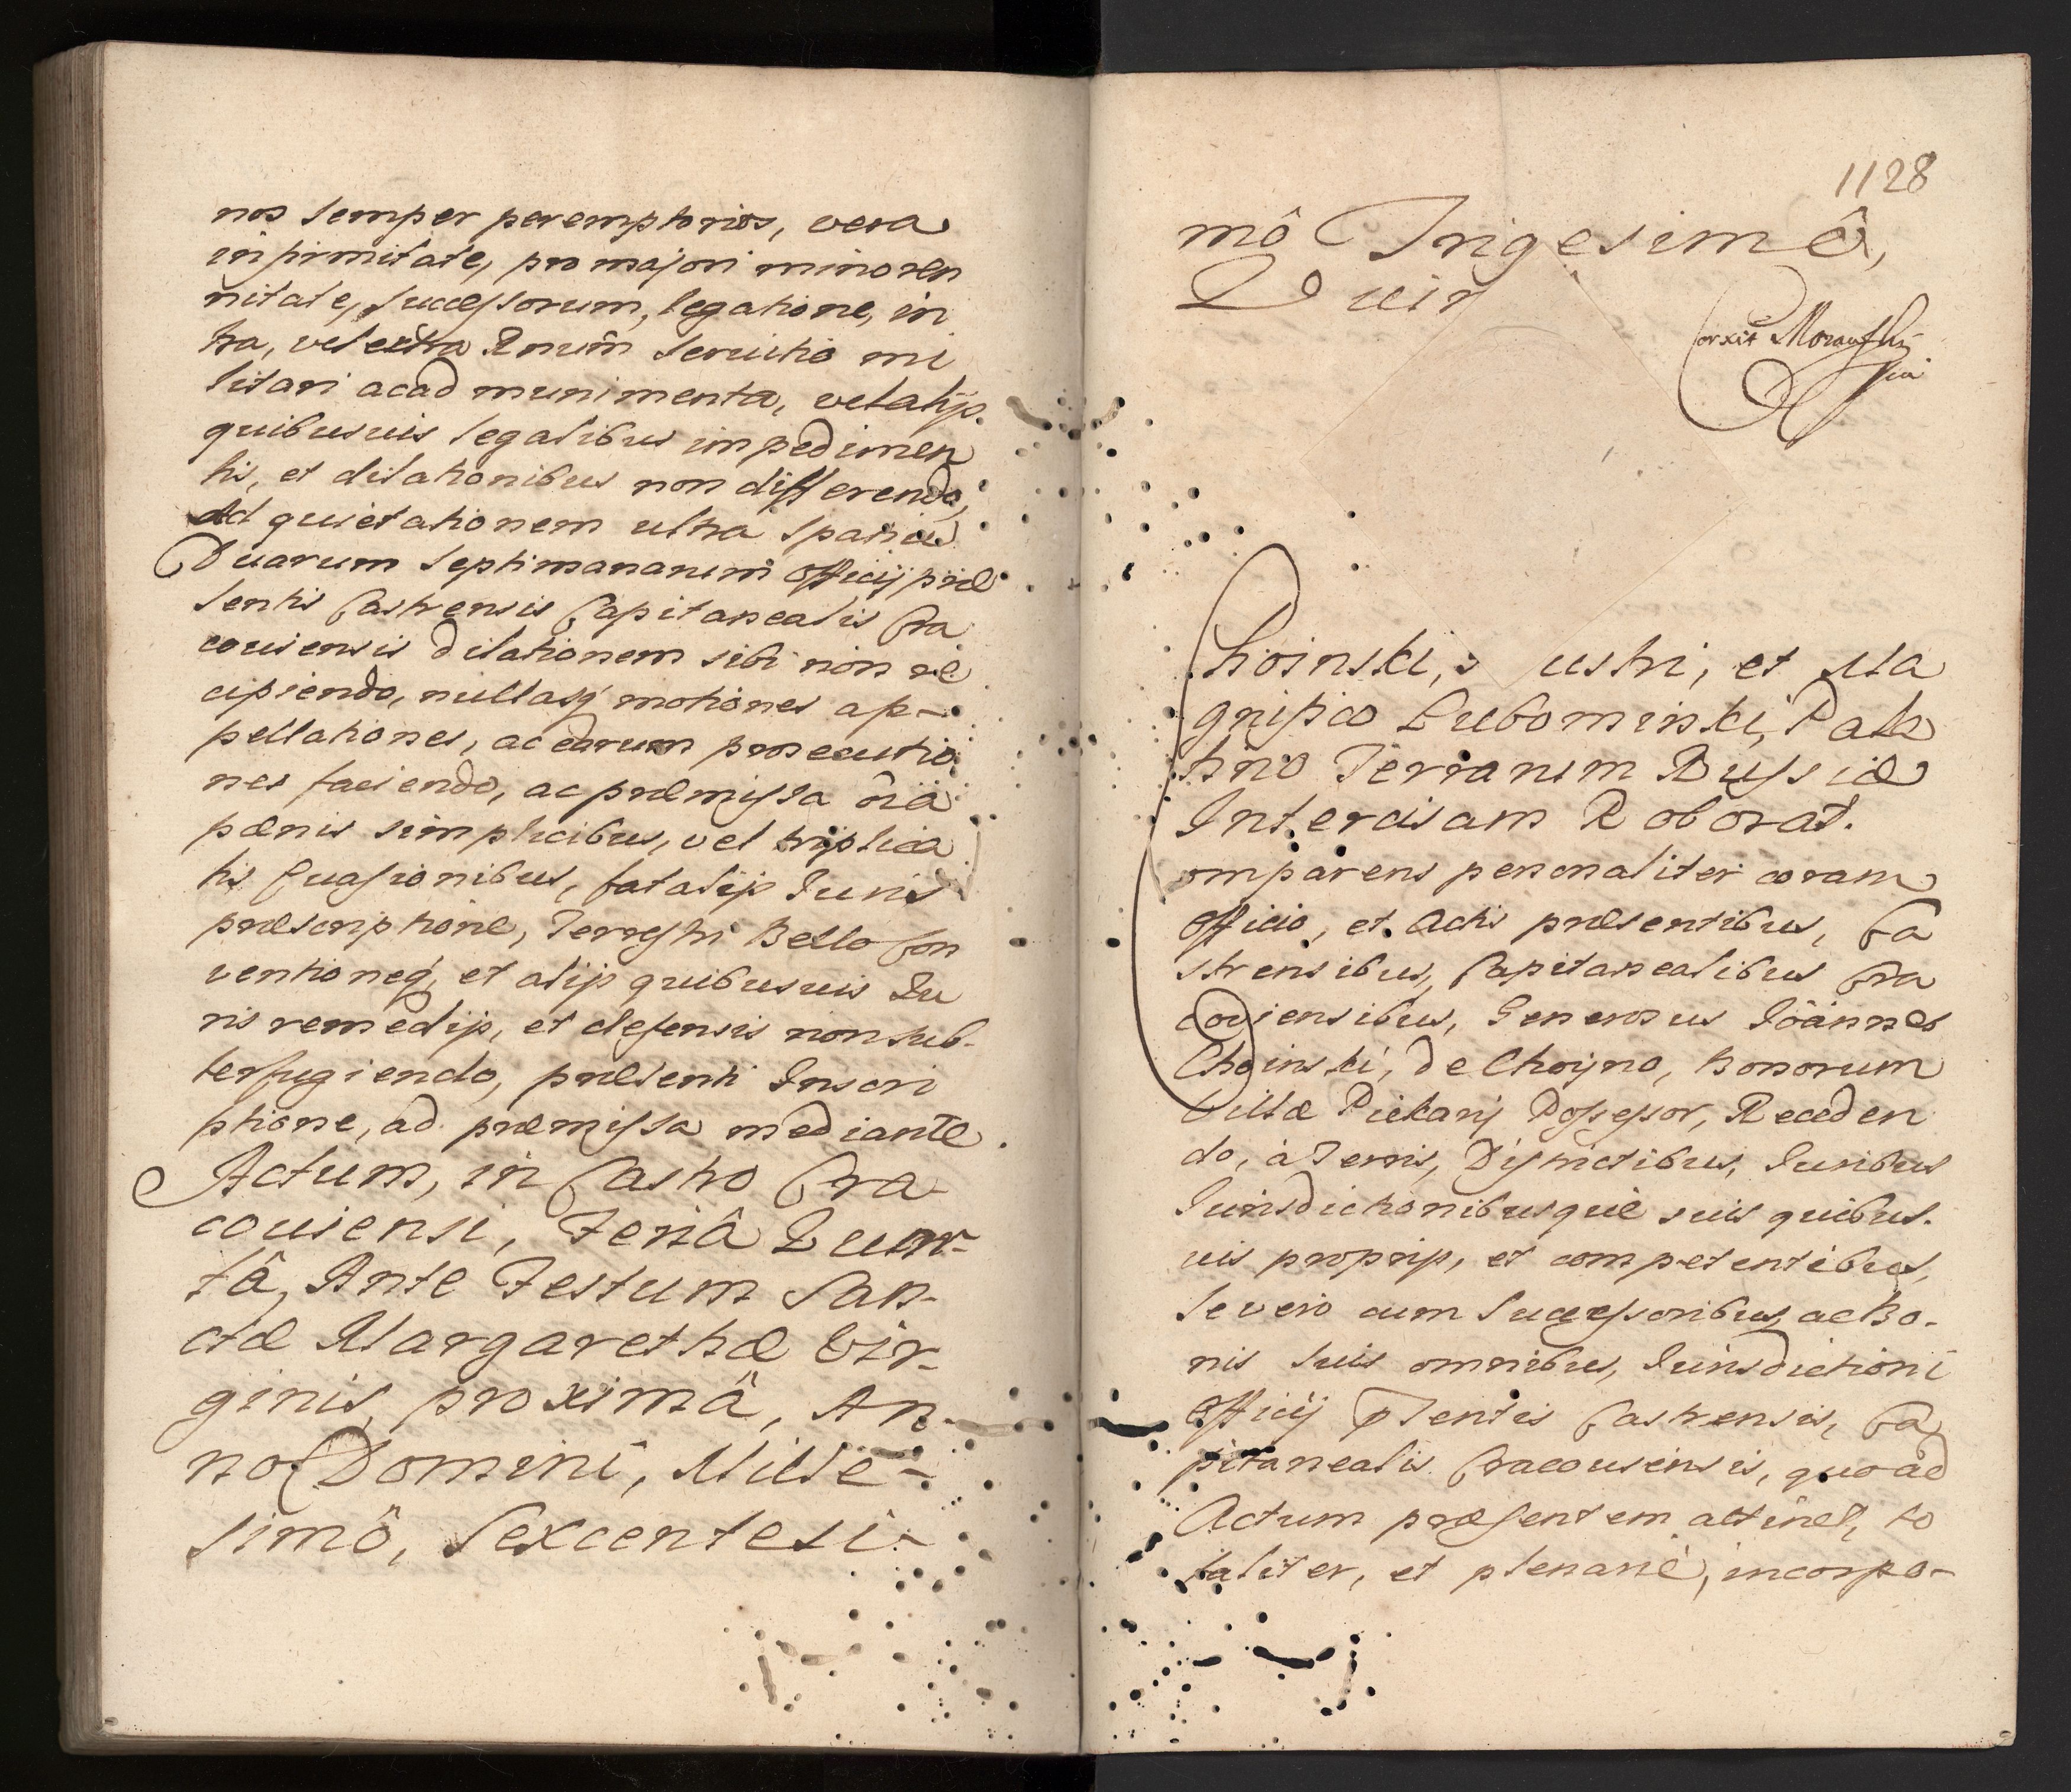 nos semper peremptorios, vera
infirmitate, pro majori minoren
nitate, successorum, legatione, in
tra, vel extra Rnum seruitio mi
litari ac ad munimenta, vel alijs
quibusuis legalibus impedimen
tis, et dilationibus non differendo,
Ad quietationem ultra spatiu
Duarum septimanarum officij præ
sentis Castrensis Capitanealis Cra
couiensis dilationem sibi non re
cipiendo, nullasq motiones ap-
pellationes, ac earum prosecutio
nes faciendo, ac præmissa oia
pœnis simplicibus, vel triplica
tis euasionibus, fatalijs Iuris
præscriptione, Terrestri Bello con
ventioneq, et alijs quibusuis Iu
ris remedijs, et defensis non sub-
terfugiendo, præsenti Inscri
ptione, ad præmissa mediante.
Actum, in Castro Cra-
couiensi, Feriâ Quar-
tâ, Ante Festum San-
ctæ Margarethæ Vir-
ginis proximâ, An-
no Domini, Mille-
simô, Sexcentesi-
1128
mô Trigesimô,
Quin
Corxit
Choinski, ustri, et Ma
gnifico Lubomirski, Pala
tino Terrarum Russiæ
Intercisam Roborat.
omparens personaliter coram
Officio, et Actis præsentibus, Ca
strensibus, Capitanealibus Cra
couiensibus, Generosus Ioannes
Choinski, de Choyno, Bonorum
Villæ Piekary Possessor, Receden
do, à Terris, Districtibus, Iuribus
Iurisdictionibusque suis quibus-
uis proprijs, et competentibus,
Se vero cum Successoribus, ac Bo-
nis suis omnibus, Iurisdictioni
Officij pSentis Castrensis, Ca
pitanealis Cracouiensis, quo ad
Actum præsentem attinet, to
taliter, et plenariè, incorpo-